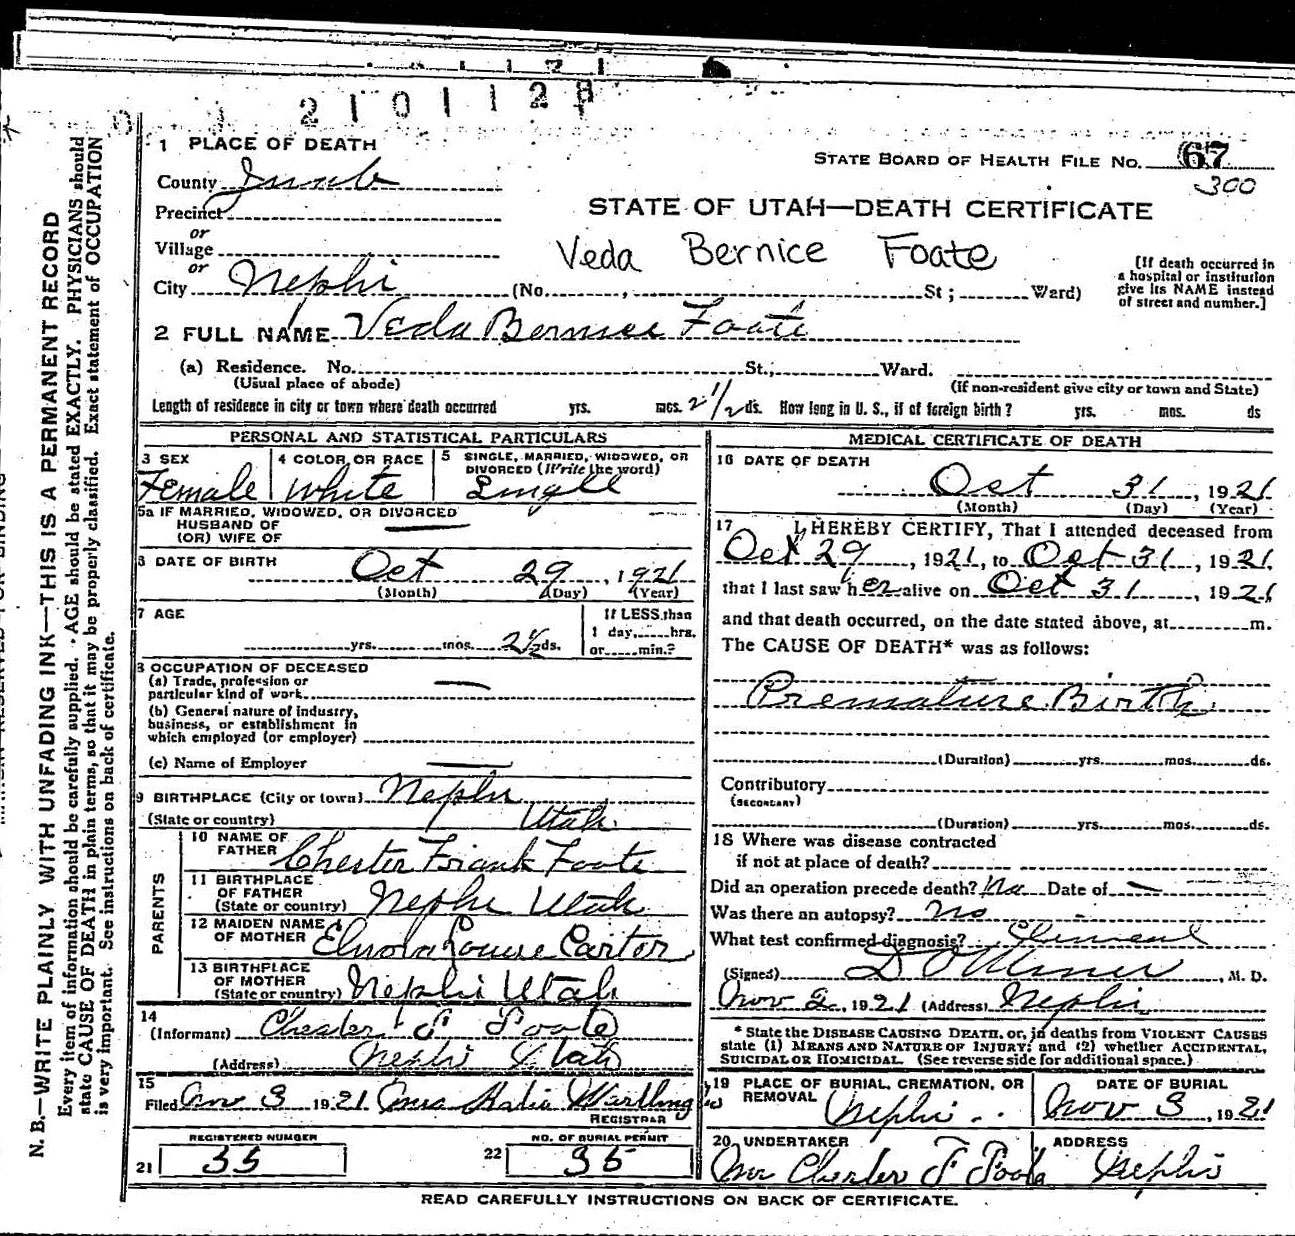 2101128
1 PLACE OF DEATH
STATE BOARD OF HEALTH FILE NO. 67
300
County Juab
Precinct
or
STATE OF UTAH—DEATH CERTIFICATE
Village
or
Veda Bernice Foote
City Nephi (No. , St; Ward)
(If death occurred in
a hospital or institution
give its NAME instead
of street and number.]
2 FULL NAME Veda Bernice Foote
(a) Residence. No. St.; Ward.
(Usual place of abode) (If non-resident give city or town and State)
Length of residence in city or town where death occurred yrs. mos. 2 1/2 ds. How long in U. S., if of foreign birth? yrs. mos. ds
PERSONAL AND STATISTICAL PARTICULARS
3 SEX
Female
4 COLOR OR RACE
White
5 SINGLE, MARRIED, WIDOWED, OR
DIVORCED (Write the word)
Single
5a IF MARRIED, WIDOWED, OR DIVORCED
HUSBAND OF
(OR) WIFE OF
6 DATE OF BIRTH Oct 29, 1921
(Month) (Day) (Year)
7 AGE
yrs. mos. 2 1/2 ds.
If LESS than
1 day, hrs.
or min.?
8 OCCUPATION OF DECEASED
(a) Trade, profession or
particular kind of work
(b) General nature of industry,
business, or establishment in
which employed (or employer)
(c) Name of Employer
9 BIRTHPLACE (City or town) Nephi
(State or country) Utah
PARENTS
10 NAME OF
FATHER Chester Frank Foote
11 BIRTHPLACE
OF FATHER
(State or country) Nephi Utah
12 MAIDEN NAME
OF MOTHER Elnora Louise Carter
13 BIRTHPLACE
OF MOTHER
(State or country) Nephi Utah
14
(Informant) Chester F Foote
(Address) Nephi Utah
15
Filed Nov 3 1921 Mrs
REGISTRAR
REGISTERED NUMBER
21 35
NO. OF BURIAL PERMIT
22 35
MEDICAL CERTIFICATE OF DEATH
16 DATE OF DEATH
Oct 31, 1921
(Month) (Day) (Year)
17 I HEREBY CERTIFY, That I attended deceased from
Oct 29, 1921, to Oct 31, 1921
that I last saw her alive on Oct 31, 1921
and that death occurred, on the date stated above, at m.
The CAUSE OF DEATH* was as follows:
Premature Birth
(Duration) yrs. mos. ds.
Contributory
(SECONDARY)
(Duration) yrs. mos. ds.
18 Where was disease contracted
if not at place of death?
Did an operation precede death? No Date of
Was there an autopsy? No
What test confirmed diagnosis?
(Signed) , M. D.
Nov 2, 1921 (Address) Nephi
* State the DISEASE CAUSING DEATH, or, in deaths from VIOLENT CAUSES
state (1) MEANS AND NATURE OF INJURY; and (2) whether ACCIDENTAL,
SUICIDAL OR HOMICIDAL. (See reverse side for additional space.)
19 PLACE OF BURIAL, CREMATION, OR
REMOVAL Nephi
DATE OF BURIAL
Nov 3, 1921
20 UNDERTAKER
Mr Chester F Foote
ADDRESS
Nephi
READ CAREFULLY INSTRUCTIONS ON BACK OF CERTIFICATE.
N. B.—WRITE PLAINLY WITH UNFADING INK—THIS IS A PERMANENT RECORD
Every item of information should be carefully supplied. AGE should be stated EXACTLY. PHYSICIANS should
state CAUSE OF DEATH in plain terms, so that it may be properly classified. Exact statement of OCCUPATION
is very important. See instructions on back of certificate.